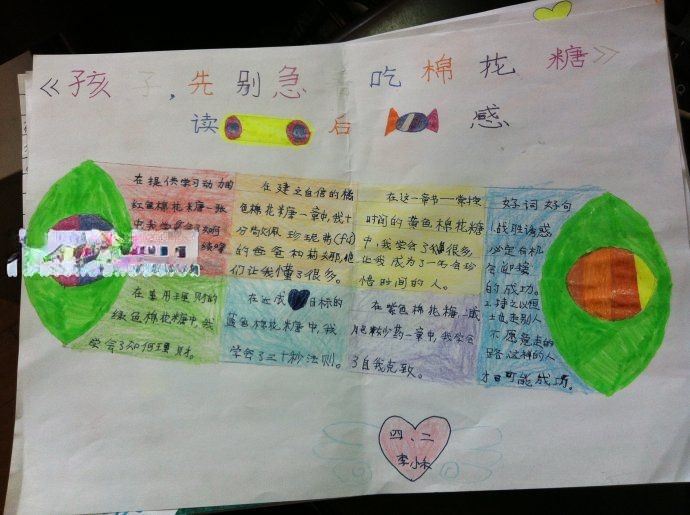 《孩子,先别急着吃棉花糖》
读后感
在提供学习动力的
红色棉花糖一章
中,我学会了如何
在建立自信的橘
色棉花糖一章中,我十
分
的爸爸和
们让我懂了很多。
在这一章节一掌控
时间的黄色棉花糖
中,我学会了很多
让我成为了一个会珍
惜时间的人。
好词好句
1.战胜诱惑
必定有机
会迎接
的成功。
2.持之以恒
走别人
不愿意走的
路,这样的人
才有可能成功。
在善用理财的
绿色棉花糖中,我
学会了如何理财。
在达成目标的
蓝色棉花糖中,我
学会了三十秒法则。
在紫色棉花糖,减
肥
一章中,我学会
了自我克制。
四、二
李小